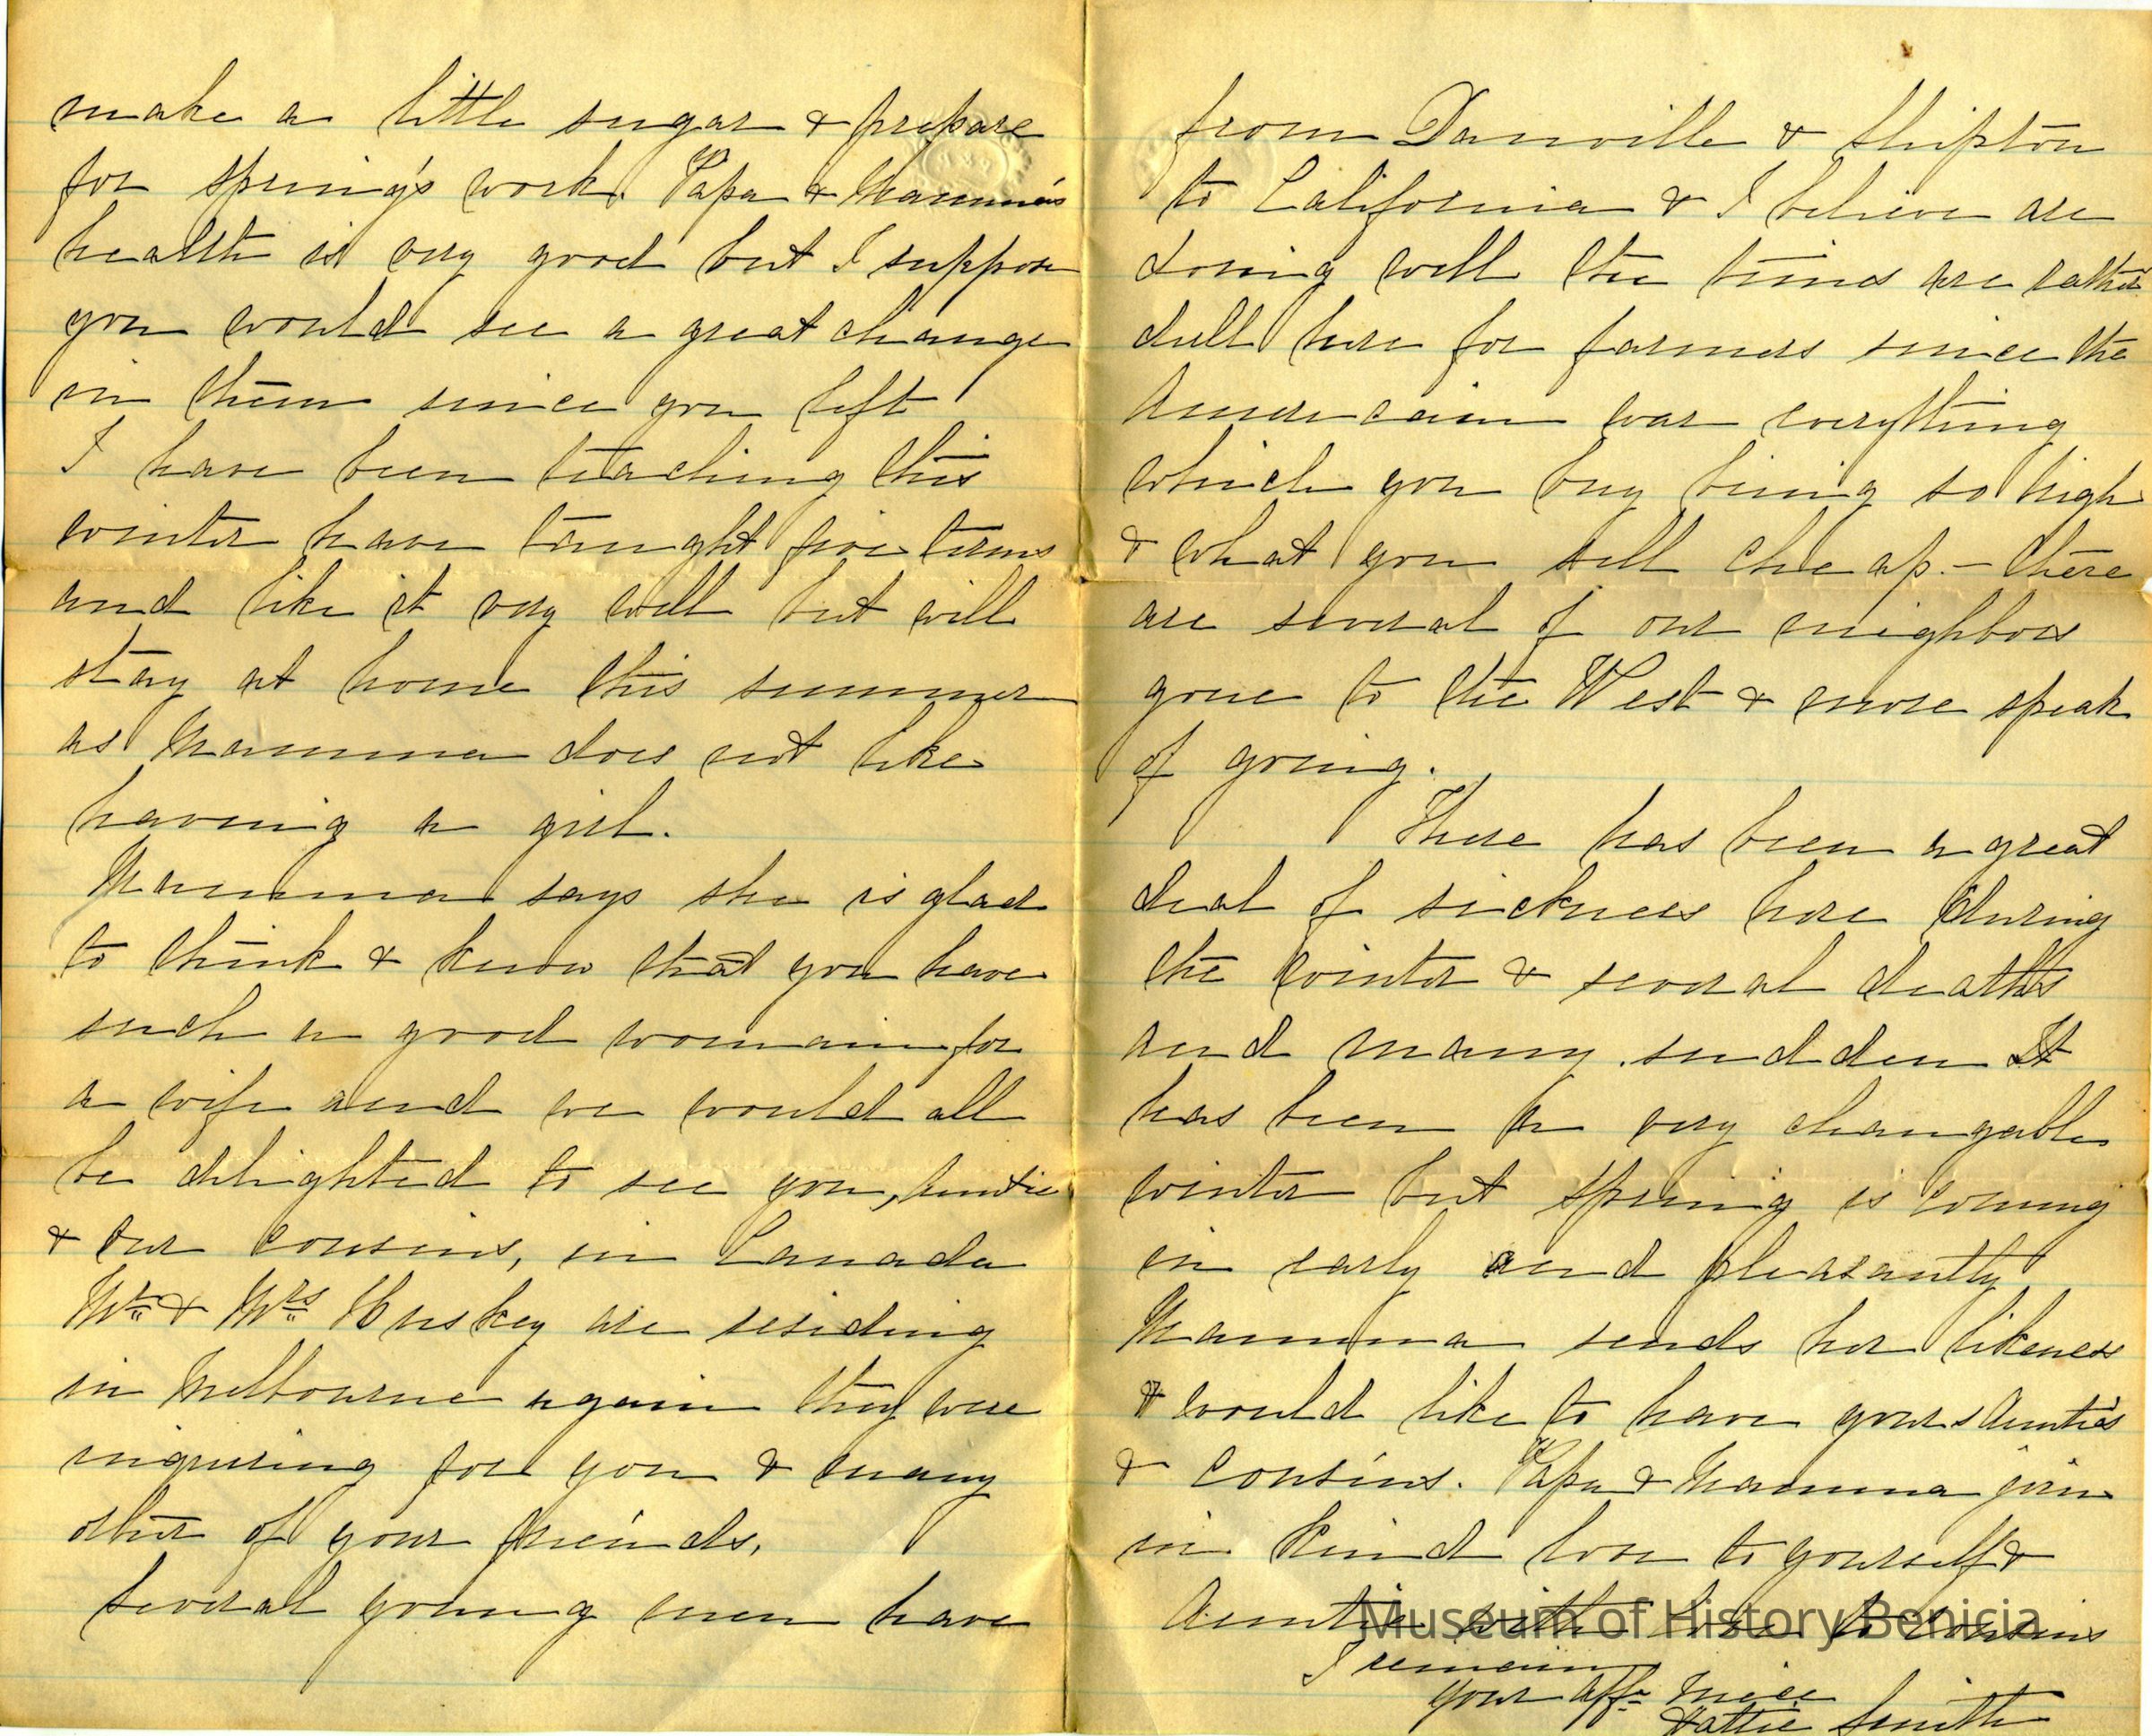 make a little sugar & prepare
for spring's work. Papa & Mamma's
health is very good but I suppose
you would see a great change
in them since you left
I have been teaching this
winter have taught five terms
and like it very well but will
stay at home this summer
as Mamma does not like
having a girl.
Mamma says she is glad
to think & know that you have
such a good woman for
a wife and we would all
be delighted to see you, Auntie
& our cousins, in Canada
Mr. & Mrs. Huskey are residing
in Melbourne again they were
inquiring for you & many
other of your friends.
Several young men have
from Danville & Shipton
to California & I believe are
doing well the times are rather
dull here for farmers since the
American war everything
which you buy being so high
& what you sell cheap. - there
are several of our neighbors
gone to the West & more speak
of going.
There has been a great
deal of sickness here during
the winter & several deaths
and many sudden It
has been a very changable
winter but spring is coming
in early and pleasantly
Mamma sends her likeness
& would like to have yours Auntie's
& cousins. Papa & Mamma join
in kind love to yourself &
Auntie with love to cousins
I remain
your aff. niece
Hattie Smith
Museum of History Benicia